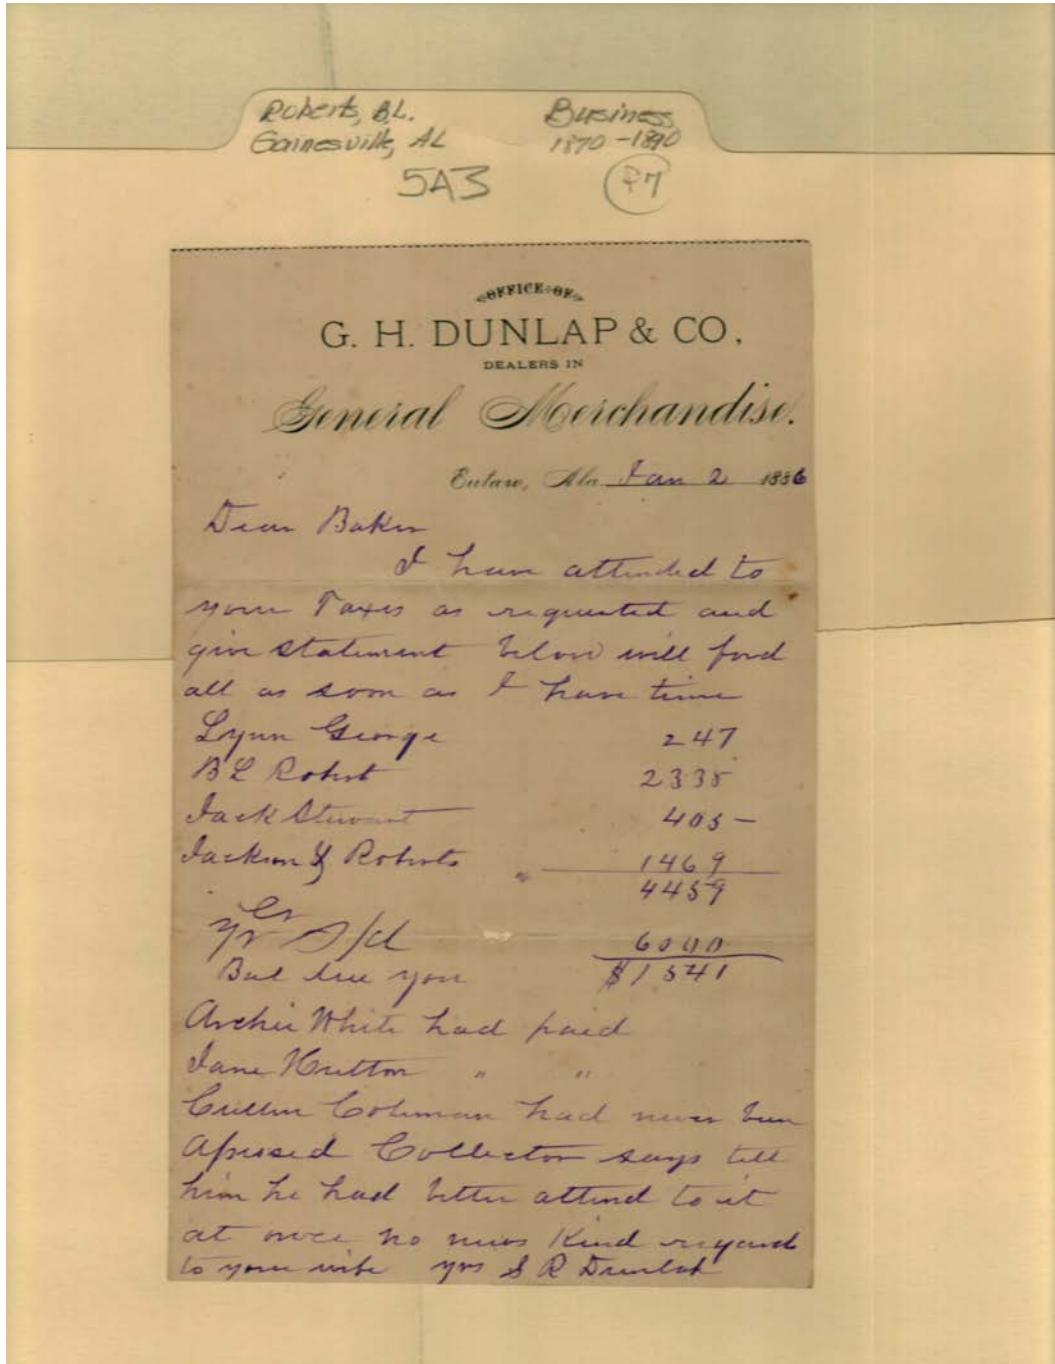 Roberts, B.L. Business
Gainesville, AL 1870-1890
5A3 P7
OFFICE OF
G. H. DUNLAP & CO,
DEALERS IN
General Merchandise.
Eutaw, Ala Jan 2 1886
Dear Baker
I have attended to
your Taxes as requested and
give statement below will ford
all as soon as I have time
Lynn George 247
B L Robert 2338
Jack Stewart 405 —
Jackson & Roberts " 1469
4459
Cr
yr S/d 6000
Bal due you $1541
Archie White had paid
Jane Hutton " "
Cullen Coleman had never been
Apssed Collector says tell
him he had better attend to it
at once no news Kind regard
to your wife yrs S R Dunlap